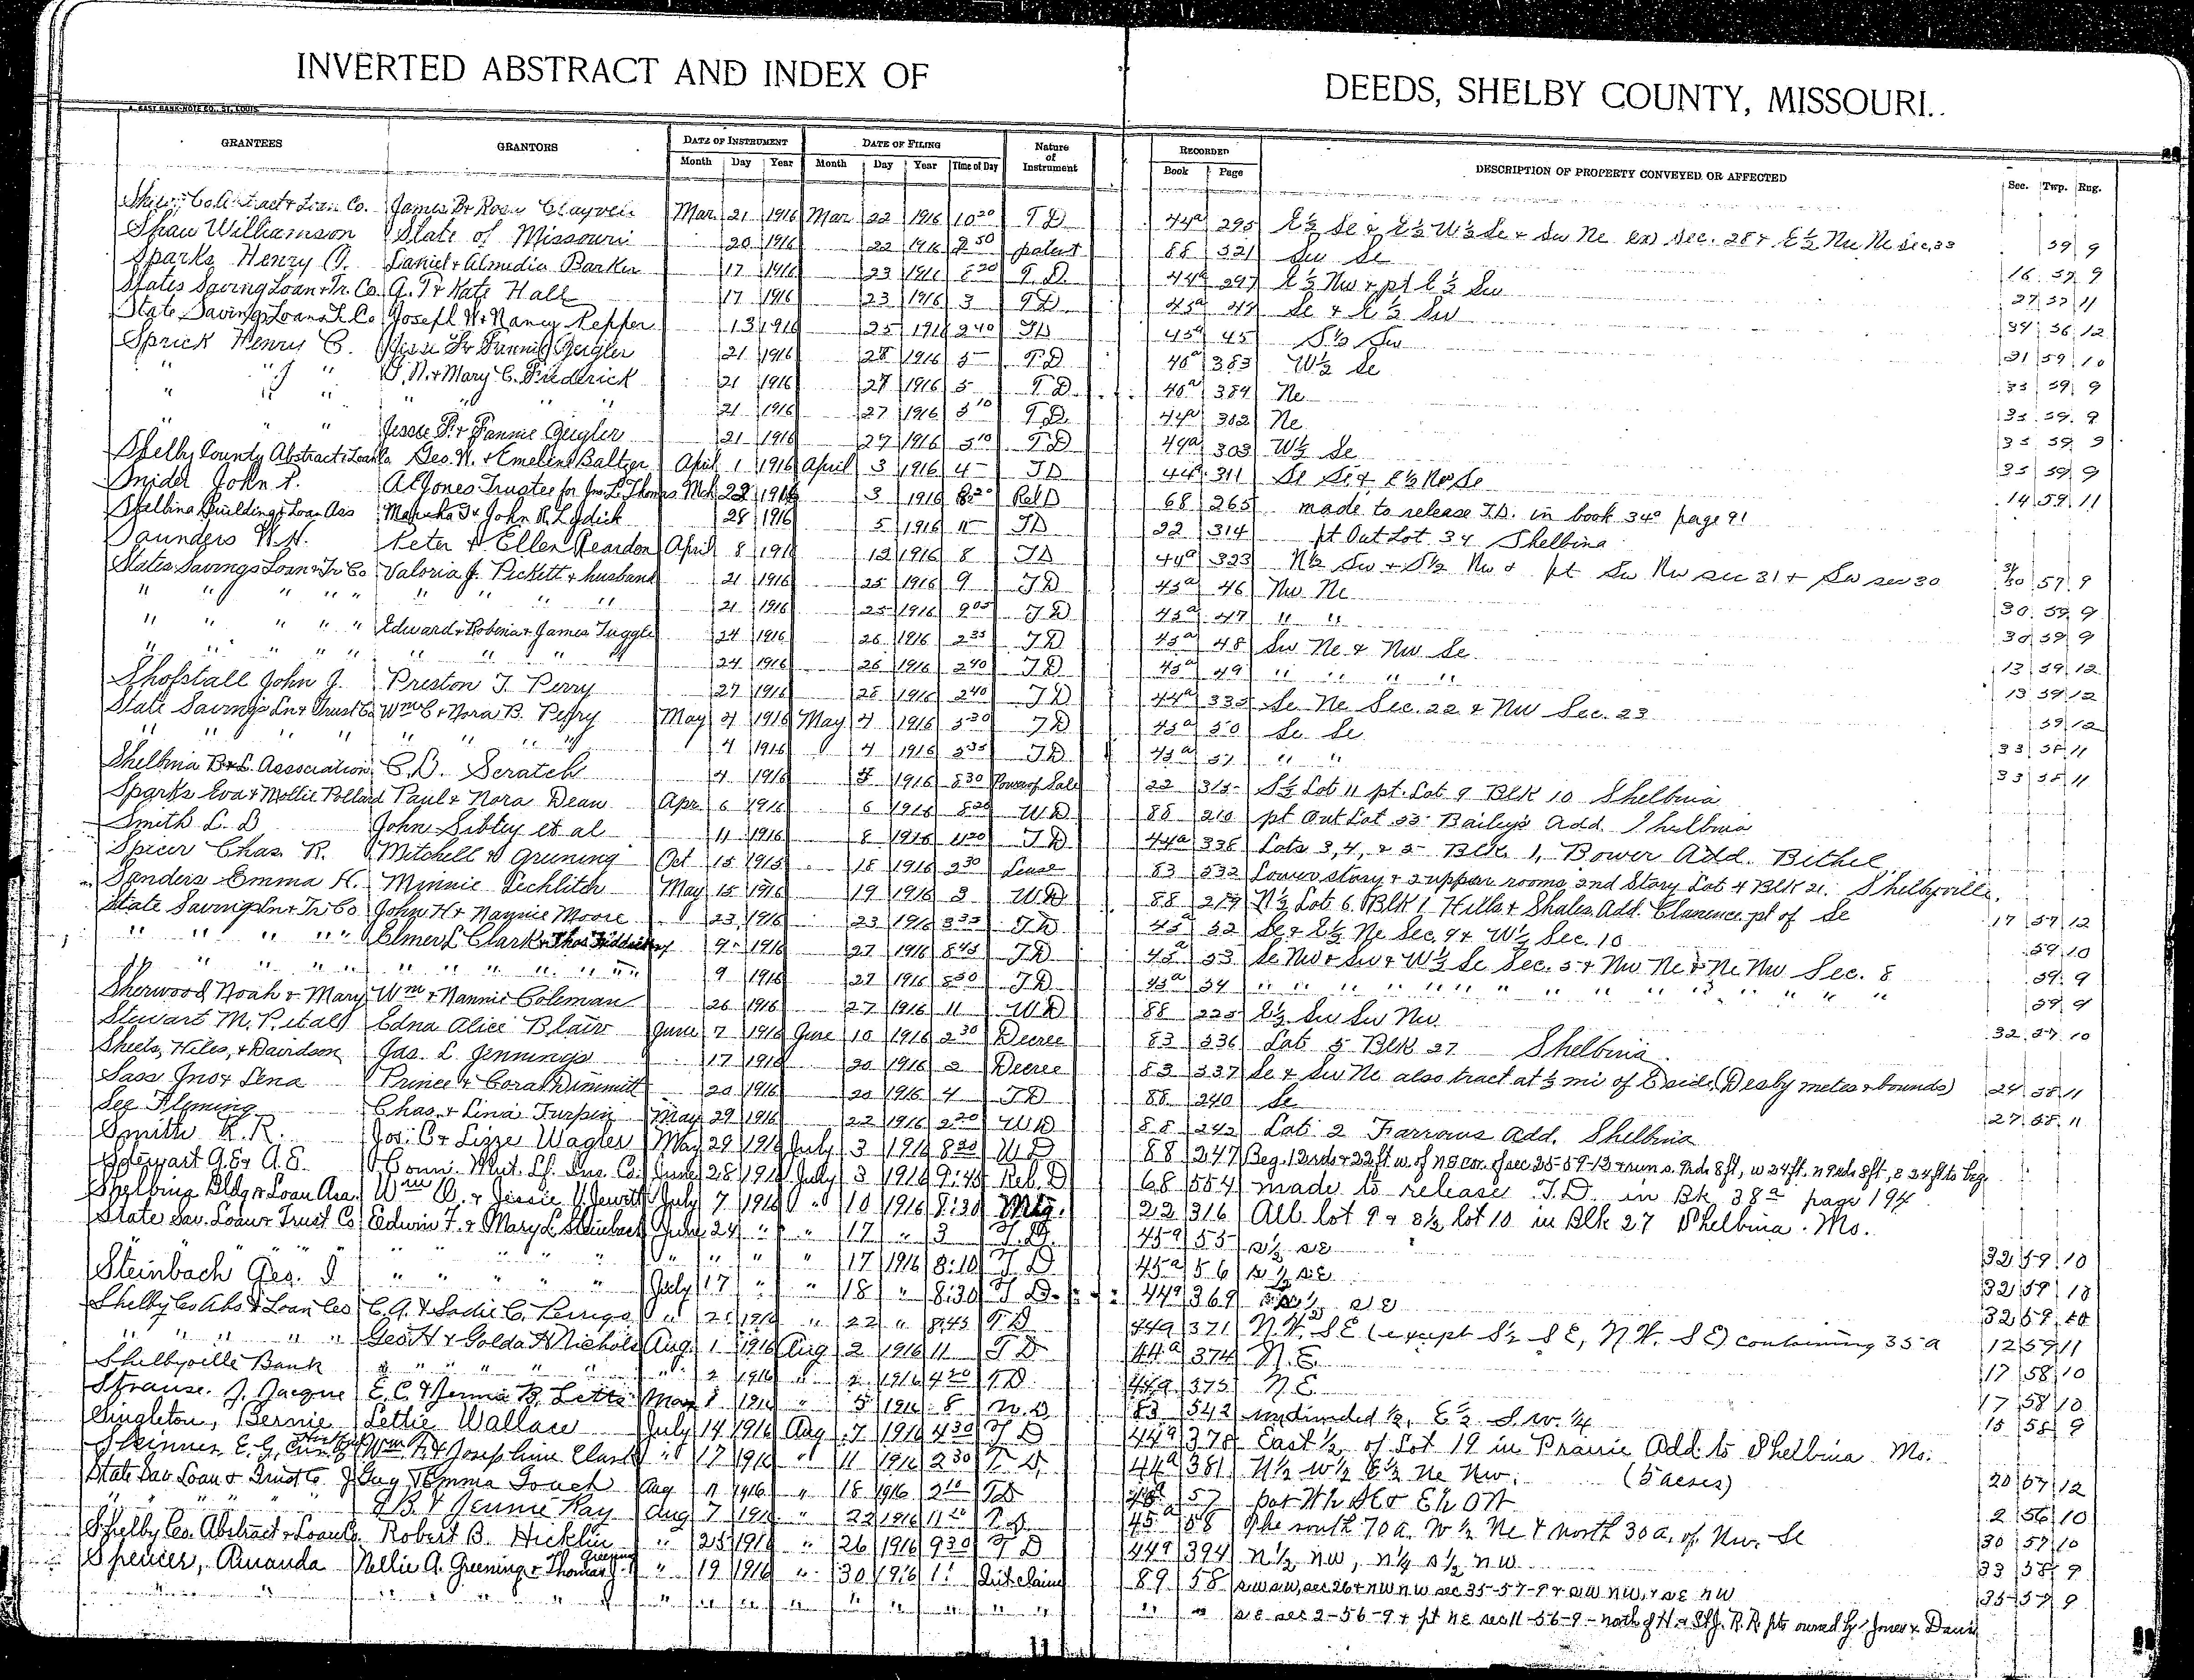 INVERTED ABSTRACT AND INDEX OF DEEDS, SHELBY COUNTY, MISSOURI.
GRANTEES GRANTORS DATE OF INSTRUMENT DATE OF FILING Nature of Instrument RECORDED DESCRIPTION OF PROPERTY CONVEYED OR AFFECTED Sec. Twp. Rng.
Month Day Year Month Day Year Time of Day Book Page
Abstract & Loan Co. James Mar 21 1916 Mar 22 1916 10 20 T D 44a 295 E½ Se & E½ W½ Se & Sw Ne sec. 28 & E½ Nw Ne Sec. 33 59 9
Shaw Williamson State of Missouri 20 1916 22 1916 2 50 patent 88 321 Sw Se 16 59 9
Sparks Henry Daniel & Almedia Barker 17 1916 23 1916 8 20 T. D. 44a 297 E½ Nw & pt E½ Sw 27 57 11
States Saving Loan & Tr. Co. G. T & Kate Hall 17 1916 23 1916 3 T D 45a 44 Se & E½ Sw 34 56 12
State Savings Loan & T. Co Joseph W & Nancy Pepper 13 1916 25 1916 2 40 T D 45a 45 S½ Sw 31 59 10
Sprick Henry C. Geigler 21 1916 1916 5 T D 40a 383 W½ Se 33 59 9
" " " & Mary C. Friederick 21 1916 27 1916 5 T D 40a 384 Ne 33 59 9
" " " " " " 21 1916 27 1916 5 10 T D 44a 302 Ne 33 59 9
" " Jesse F. & Fannie Geigler 21 1916 27 1916 5 10 T D 44a 303 W½ Se 33 59 9
Shelby County Abstract & Loan Co Geo. W. & Emeline Baltzer April 1 1916 April 3 1916 4 T D 44a 311 Se & E½ Se 14 59 11
Snider John A C Jones Trustee for Jno. L. Thomas Mch 22 1916 3 1916 8 20 Rel D 68 265 made to release T.D. in book 34a page 91
Shelbina Building & Loan Ass Martha J & John R Lydick 28 1916 5 1916 11 T D 22 314 pt Out Lot 34 Shelbina
Saunders W. H. Peter & Ellen Reardon April 8 1916 12 1916 8 T D 44a 323 N½ Sw & S½ Nw & pt Sw Nw sec 31 & Sw sec 30 31/30 57 9
States Savings Loan & Tr Co Valoria J. Pickett & husband 21 1916 25 1916 9 T D 45a 46 Nw Ne 30 59 9
" " " " " " " " " 21 1916 25 1916 9 05 T D 45a 47 " " 30 59 9
" " " " " Edward & Robina & James Tuggle 24 1916 26 1916 2 35 T D 45a 48 Sw Ne & Nw Se 13 59 12
" " " " " " " " " 24 1916 26 1916 2 40 T D 45a 49 " " " " 13 59 12
Shofstall John J. Preston T. Perry 27 1916 28 1916 2 40 T D 44a 335 Se Ne Sec. 22 & Nw Sec. 23 59 12
State Savings Ln & Trust Co Wm C & Nora B. Perry May 4 1916 May 4 1916 3 30 T D 45a 50 Se Se 33 58 11
" " " " " " " " 4 1916 4 1916 3 35 T D 45a 51 " " 33 58 11
Shelbina B & L Association C. D. Scratch 4 1916 5 1916 8 30 Power of Sale 22 315 S½ Lot 11 pt. Lot 9 BLK 10 Shelbina
Sparks Eva & Mollie Pollard Paul & Nora Dean Apr. 6 1916 6 1916 8 20 W D 88 210 pt Out Lot 33 Bailey's Add. Shelbina
Smith L. D John Sibley et al 11 1916 8 1916 11 20 T D 44a 336 Lots 3, 4, & 5 BLK. 1, Bower Add. Bethel
Spicer Chas. R. Mitchell & Gruning Oct 15 1915 18 1916 2 30 Lease 83 532 Lower story & 2 upper rooms 2nd Story Lot 4 BLK 21. Shelbyville.
Sanders Emma H. Minnie Lechliter May 15 1916 19 1916 3 W D 88 219 N½ Lot 6 BLK 1 Hills & Shales Add. Clarence pt of Se 17 57 12
State Savings Ln & Tr Co John H & Nannie Moore 23 1916 23 1916 3 35 T D 45a 52 Se & E½ Ne Sec. 9 & W½ Sec. 10 59 10
" " " " " Elmer L Clark & Thos 9 1916 27 1916 8 45 T D 45a 53 Se Nw & Sw & W½ Se Sec. 5 & Nw Ne & Ne Nw Sec. 8 59 9
" " " " " " " " " " " 9 1916 27 1916 8 50 T D 45a 54 " " " " " " " " " " " " 59 9
Sherwood Noah & Mary Wm & Nannie Coleman 26 1916 27 1916 11 W D 88 225 E½ Sw Sw Nw 32 57 10
Stewart M. P. et al Edna Alice Blair June 7 1916 June 10 1916 2 30 Decree 83 336 Lot 5 BLK 27 Shelbina
Sheets, Hiles, & Davidson Jas. L. Jennings 17 1916 20 1916 2 Decree 83 337 Se & Sw Ne also tract at ½ mi of E side (Des by metes & bounds) 24 58 11
Sass Jno & Lena Prince & Cora Dimmitt 20 1916 20 1916 4 T D 88 240 Se 27 58 11
See Fleming Chas. & Lina Turpin May 29 1916 22 1916 2 20 W D 88 242 Lot 2 Farrows Add. Shelbina
Smith R. R. Jos. C & Lizze Wagler May 29 1916 July 3 1916 8 20 W D 88 247 Beg. 12 rds & 22 ft w. of ne cor. of sec 35-59-12 & run s. 8 ft, w 24 ft. n 8 ft, e 24 ft to beg.
Stewart G. E & A. E. Conn. Mut. Lf. Ins. Co. June 28 1916 July 3 1916 9:45 Rel. D 68 554 made to release T.D. in Bk 38a page 194
Shelbina Bldg & Loan Ass. Wm & Jessie Jewett July 7 1916 " 10 1916 8:30 Mtg. 22 316 All lot 9 & s½ lot 10 in Blk 27 Shelbina. Mo.
State Sav. Loan & Trust Co Edwin F. & Mary L. Steinbach June 24 " " 17 " 3 T. D. 45a 55 s½ se 32 59 10
" " " " " " " " " " " " " " 17 1916 8:10 T D 45a 56 s½ se 32 59 10
Steinbach Geo. " " " " " July 17 " " 18 " 8:30 T D 44a 369 s½ se 32 59 10
Shelby Co Abs & Loan Co C. A. & Sadie C. Perrigo " 21 1916 " 22 " 8:45 T D 44a 371 N.W. SE (except S½ SE, N.W. SE) containing 35 a 12 59 11
" " " " " Geo H & Golda Nichols Aug. 1 1916 Aug 2 1916 11 T D 44a 374 N.E. 17 58 10
Shelbyville Bank " " " " " " 2 1916 " 2 1916 4 20 T D 44a 375 N.E. 17 58 10
Strause. J. Jacque E. C & B. Letts Mar 1 1916 " 5 1916 8 W. D 83 542 undivided ½, E½ S.W. ¼ 15 58 9
Singleton, Bernie Lettie Wallace July 14 1916 Aug 7 1916 4 30 T D 44a 378 East ½ of Lot 19 in Prairie Add. to Shelbina Mo.
Skinner E. G. Wm & Josephine Clark " 17 1916 " 11 1916 2 30 T. D. 44a 381 N½ W½ E½ Ne Nw. (5 acres) 20 57 12
State Sav. Loan & Trust Co Guy & Emma Fouch Aug 11 1916 " 18 1916 2 10 T D 45a 57 2 56 10
" " " " & Jennie Ray Aug 7 1916 " 22 1916 11 20 T D 45a 58 The south 70 a. W½ Ne & north 30 a. of Nw. Se 30 57 10
Shelby Co. Abstract & Loan Co. Robert B. Hicklin " 25 1916 " 26 1916 9 30 T D 44a 394 n½ nw, n½ s½ nw 33 58 9
Spencer, Amanda Nellie A. Greening & Thomas Greening " 19 1916 " 30 1916 11 Quit claim 89 58 sw sw, sec 26 & nw nw sec 35-57-9 & sw nw, & se nw 35 57 9
" " " " " " " " " " " " " " " " se sec 2-56-9 & pt ne sec 11-56-9 - north of H & St J. R. R pts owned by Jones & Davis
11